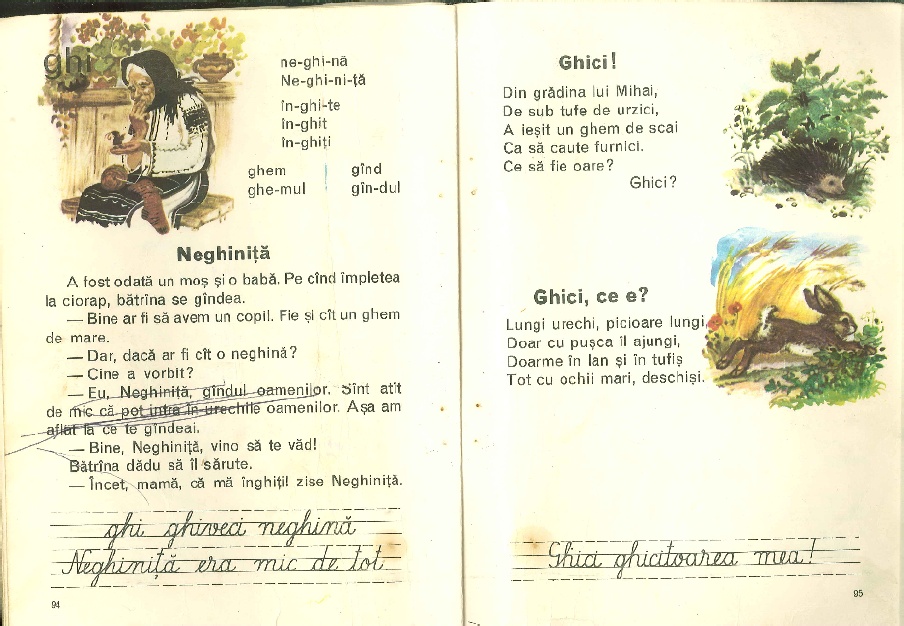 ghi
ne-ghi-nă
Ne-ghi-ni-ță
în-ghi-te
în-ghit
în-ghiți
ghem gînd
ghe-mul gîn-dul
Neghiniță
A fost odată un moș și o babă. Pe cînd împletea
la ciorap, bătrîna se gîndea.
— Bine ar fi să avem un copil. Fie și cît un ghem
de mare.
— Dar, dacă ar fi cît o neghină?
— Cine a vorbit?
— Eu, Neghiniță, gîndul oamenilor. Sînt atît
de mic că pot intra în urechile oamenilor. Așa am
aflat la ce te gîndeai.
— Bine, Neghiniță, vino să te văd!
Bătrîna dădu să îl sărute.
— Încet, mamă, că mă înghiți! zise Neghiniță.
ghi ghiveci neghină
Neghiniță era mic de tot
94
Ghici!
Din grădina lui Mihai,
De sub tufe de urzici,
A ieșit un ghem de scai
Ca să caute furnici.
Ce să fie oare?
Ghici?
Ghici, ce e?
Lungi urechi, picioare lungi,
Doar cu pușca îl ajungi,
Doarme în lan și în tufiș
Tot cu ochii mari, deschiși.
Ghici ghicitoarea mea!
95